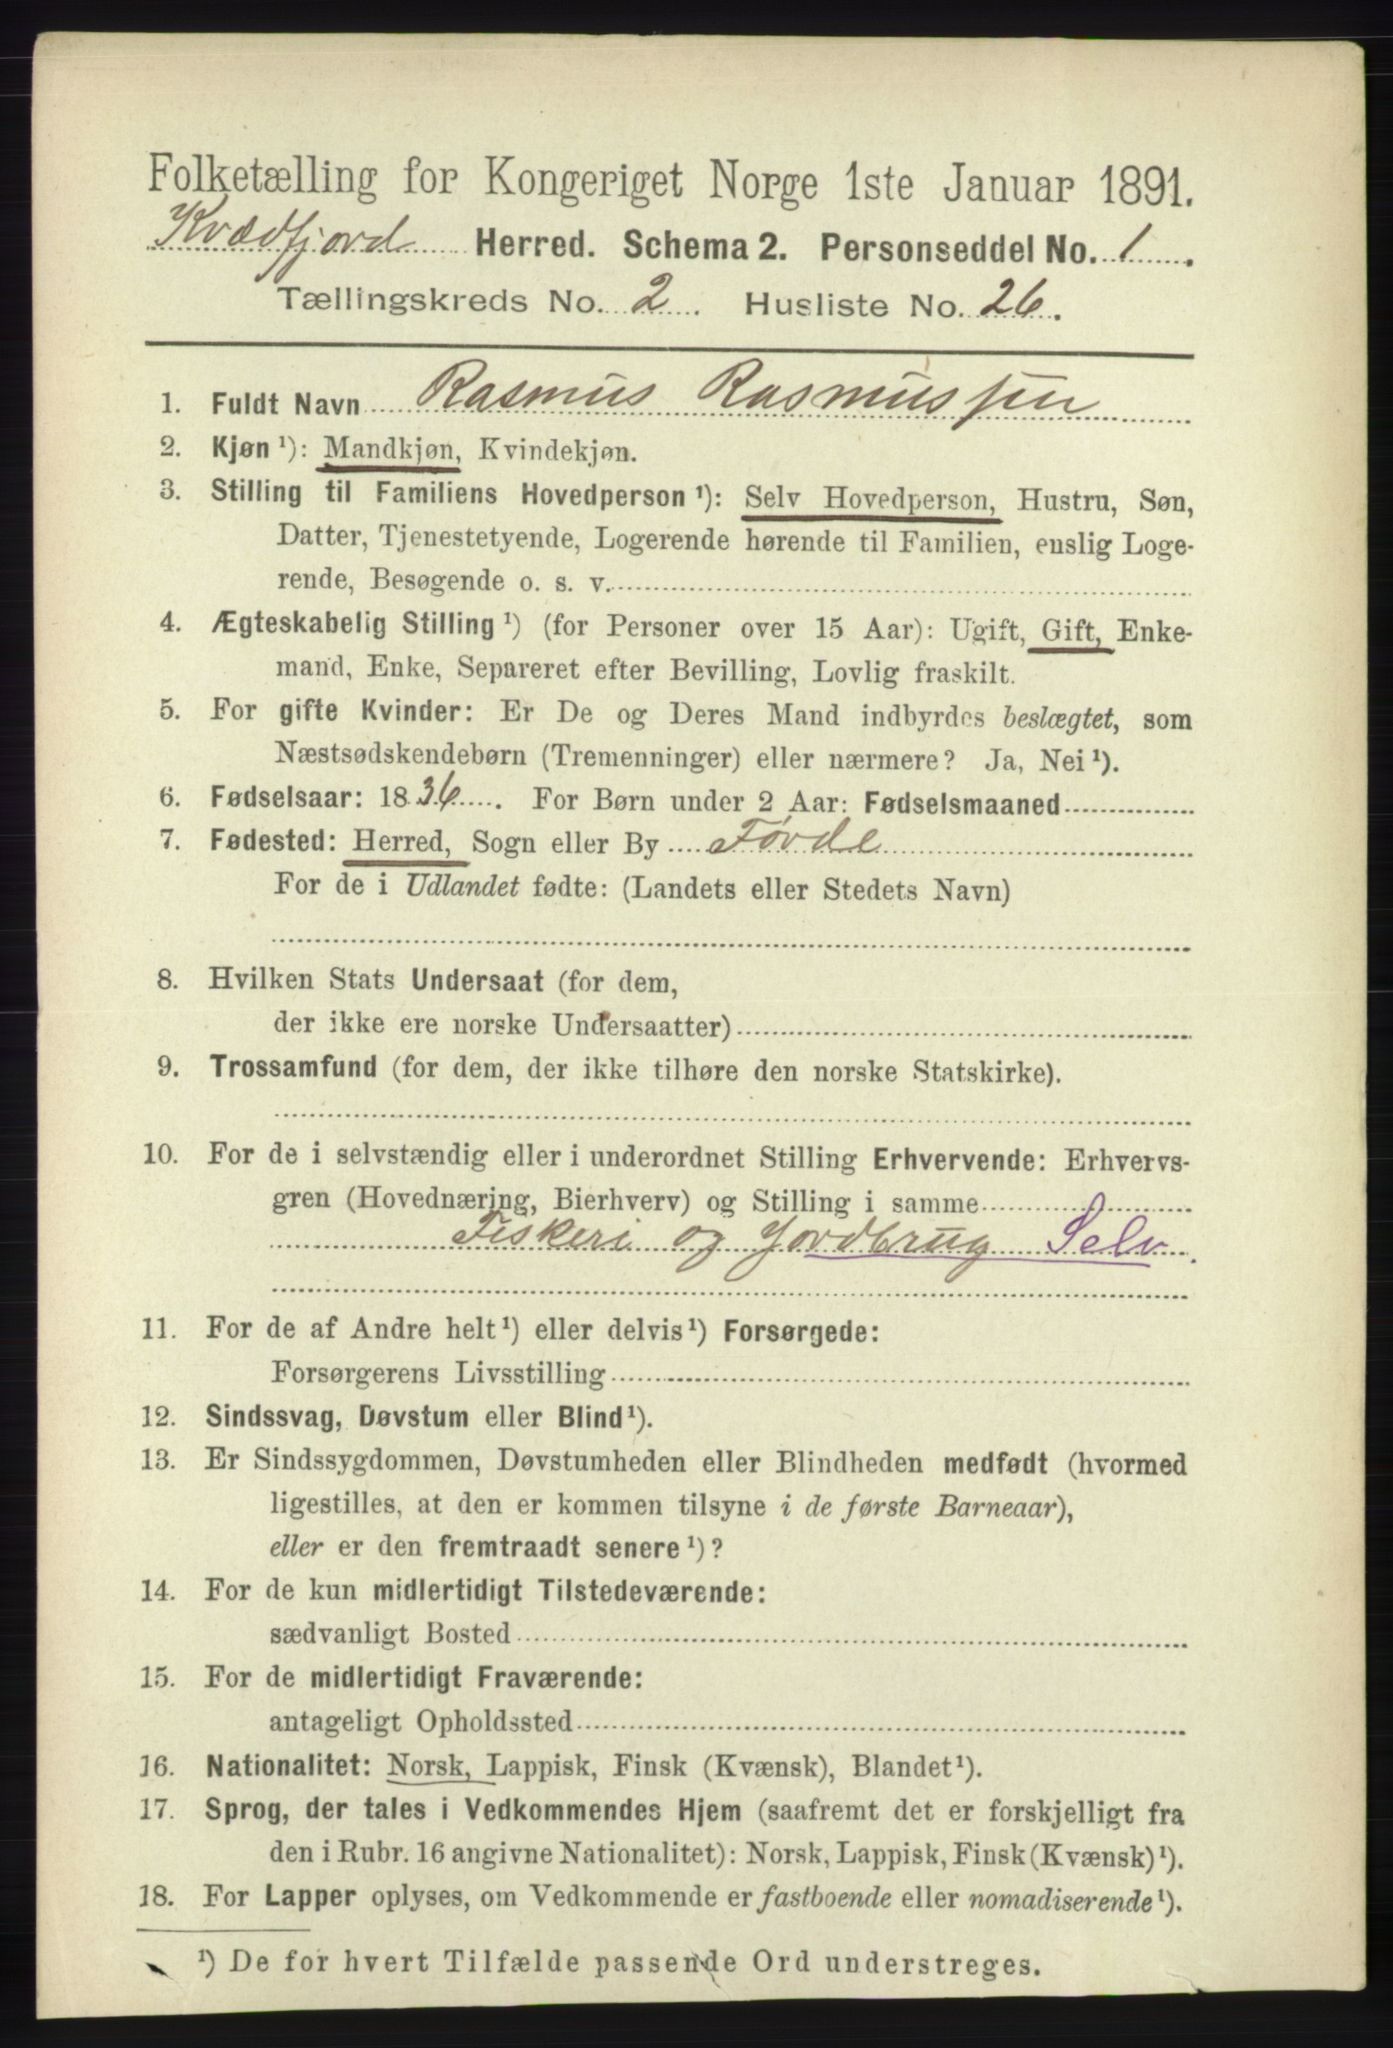 Folketælling for Kongeriget Norge 1ste Januar 1891.
Kvædfjord Herred. Schema 2. Personseddel No. 1.
Tællingskreds No. 2. Husliste No. 26.
1. Fuldt Navn Rasmus Rasmussen
2. Kjøn ¹): Mandkjøn, Kvindekjøn.
3. Stilling til Familiens Hovedperson ¹): Selv Hovedperson, Hustru, Søn,
Datter, Tjenestetyende, Logerende hørende til Familien, enslig Loge-
rende, Besøgende o. s. v.
4. Ægteskabelig Stilling ¹) (for Personer over 15 Aar): Ugift, Gift, Enke-
mand, Enke, Separeret efter Bevilling, Lovlig fraskilt.
5. For gifte Kvinder: Er De og Deres Mand indbyrdes beslægtet, som
Næstsødskendebørn (Tremenninger) eller nærmere? Ja, Nei ¹).
6. Fødselsaar: 1836. For Børn under 2 Aar: Fødselsmaaned
7. Fødested: Herred, Sogn eller By Førde
For de i Udlandet fødte: (Landets eller Stedets Navn)
8. Hvilken Stats Undersaat (for dem,
der ikke ere norske Undersaatter)
9. Trossamfund (for dem, der ikke tilhøre den norske Statskirke).
10. For de i selvstændig eller i underordnet Stilling Erhvervende: Erhvervs-
gren (Hovednæring, Bierhverv) og Stilling i samme
Fiskeri og Jordbrug Selv.
11. For de af Andre helt ¹) eller delvis ¹) Forsørgede:
Forsørgerens Livsstilling
12. Sindssvag, Døvstum eller Blind ¹).
13. Er Sindssygdommen, Døvstumheden eller Blindheden medfødt (hvormed
ligestilles, at den er kommen tilsyne i de første Barneaar),
eller er den fremtraadt senere ¹)?
14. For de kun midlertidigt Tilstedeværende:
sædvanligt Bosted
15. For de midlertidigt Fraværende:
antageligt Opholdssted
16. Nationalitet: Norsk, Lappisk, Finsk (Kvænsk), Blandet ¹).
17. Sprog, der tales i Vedkommendes Hjem (saafremt det er forskjelligt fra
den i Rubr. 16 angivne Nationalitet): Norsk, Lappisk, Finsk (Kvænsk) ¹).
18. For Lapper oplyses, om Vedkommende er fastboende eller nomadiserende ¹).
¹) De for hvert Tilfælde passende Ord understreges.